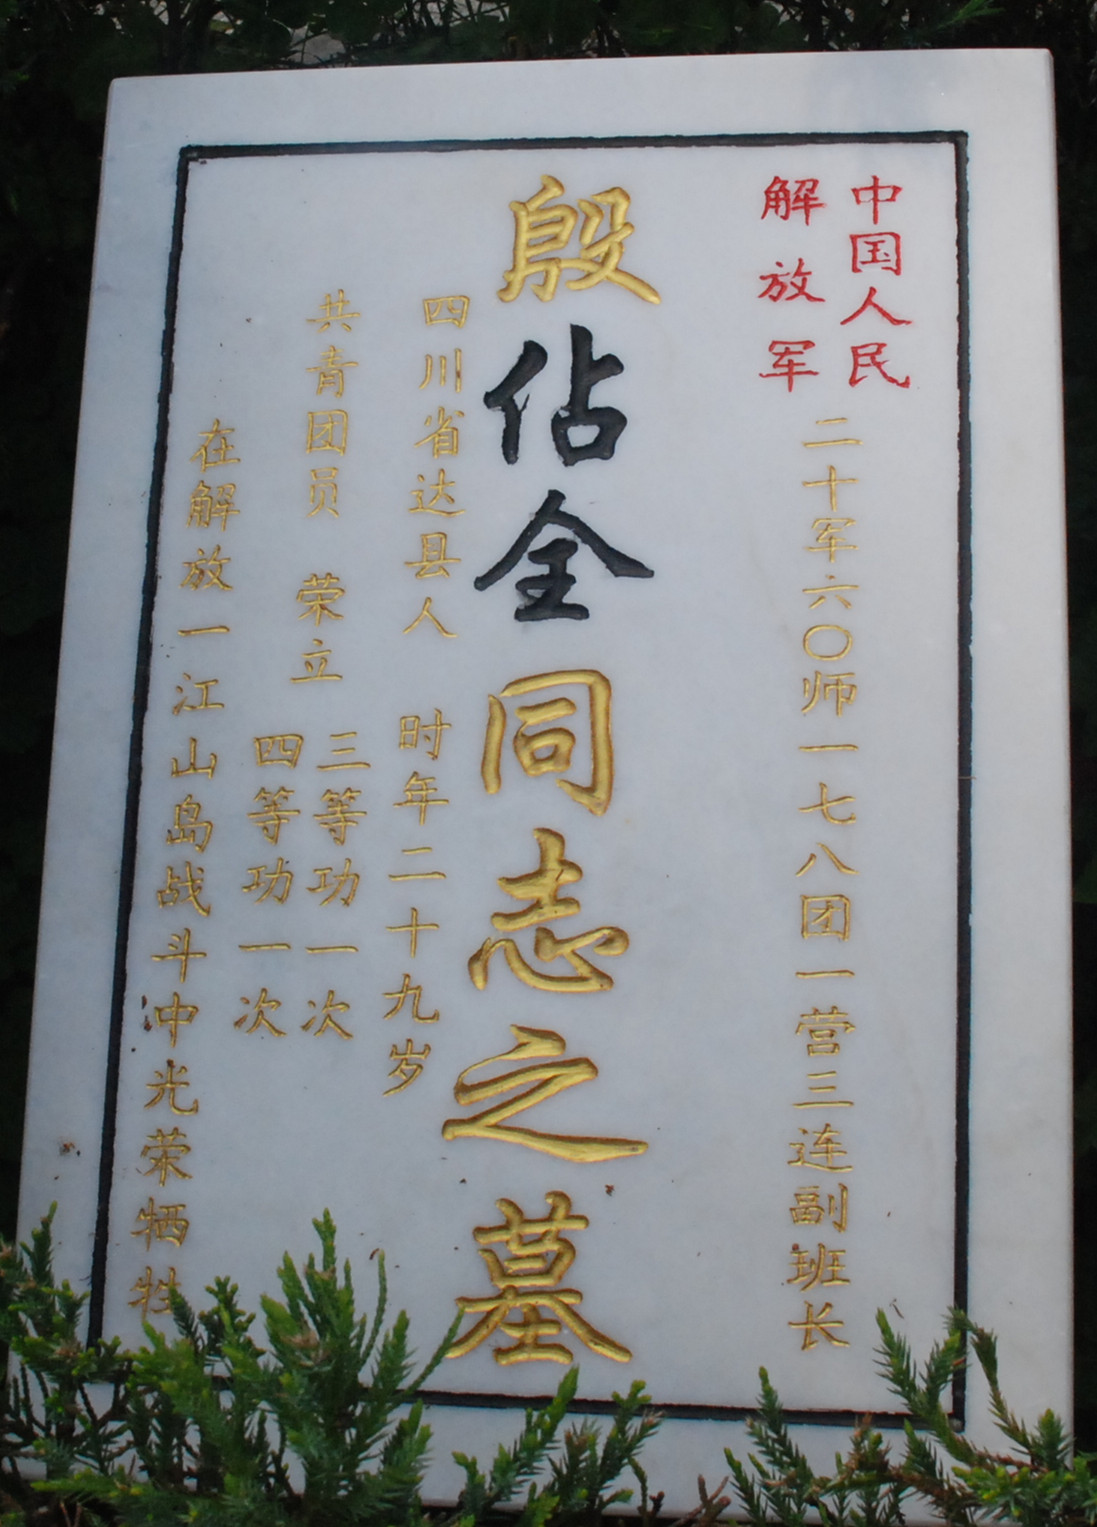 中国人民
解放军
二十军六〇师一七八团一营三连副班长
殷佔全同志之墓
四川省达县人 时年二十九岁
共青团员 荣立
三等功一次
四等功一次
在解放一江山岛战斗冲光荣牺牲